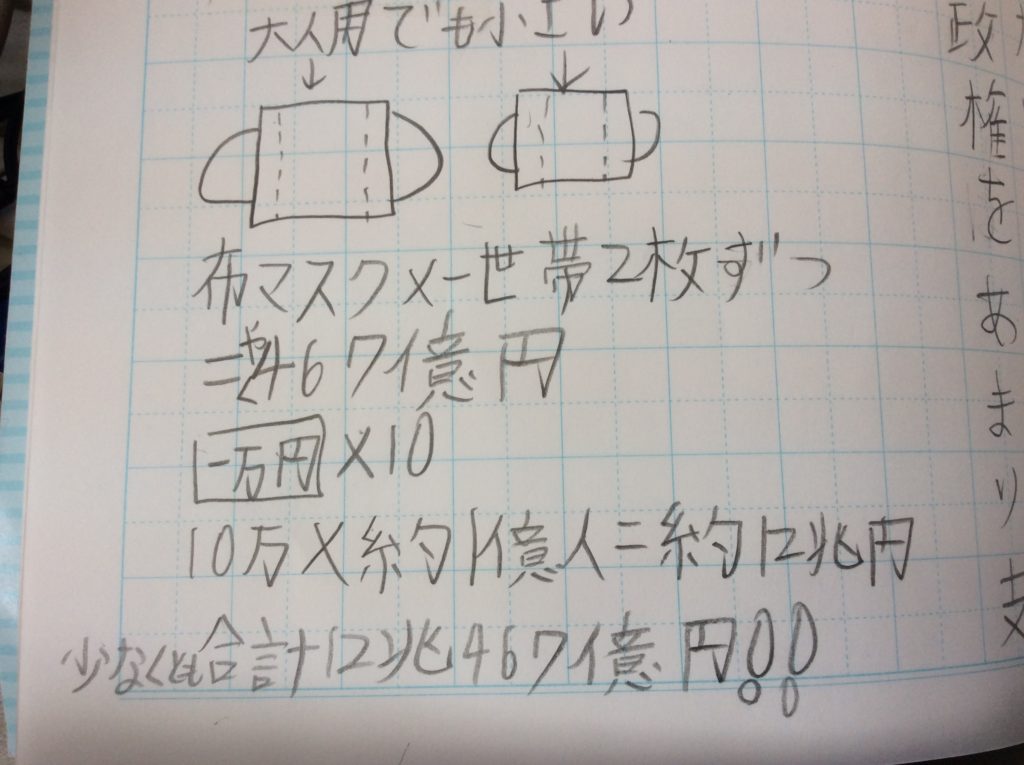 大人用でも小さい
↓ ↓
布マスク×一世帯2枚ずつ
=やく467億円
一万円×10
10万×約1億人=約12兆円
少なくとも合計12兆467億円!!
政権をあまり支